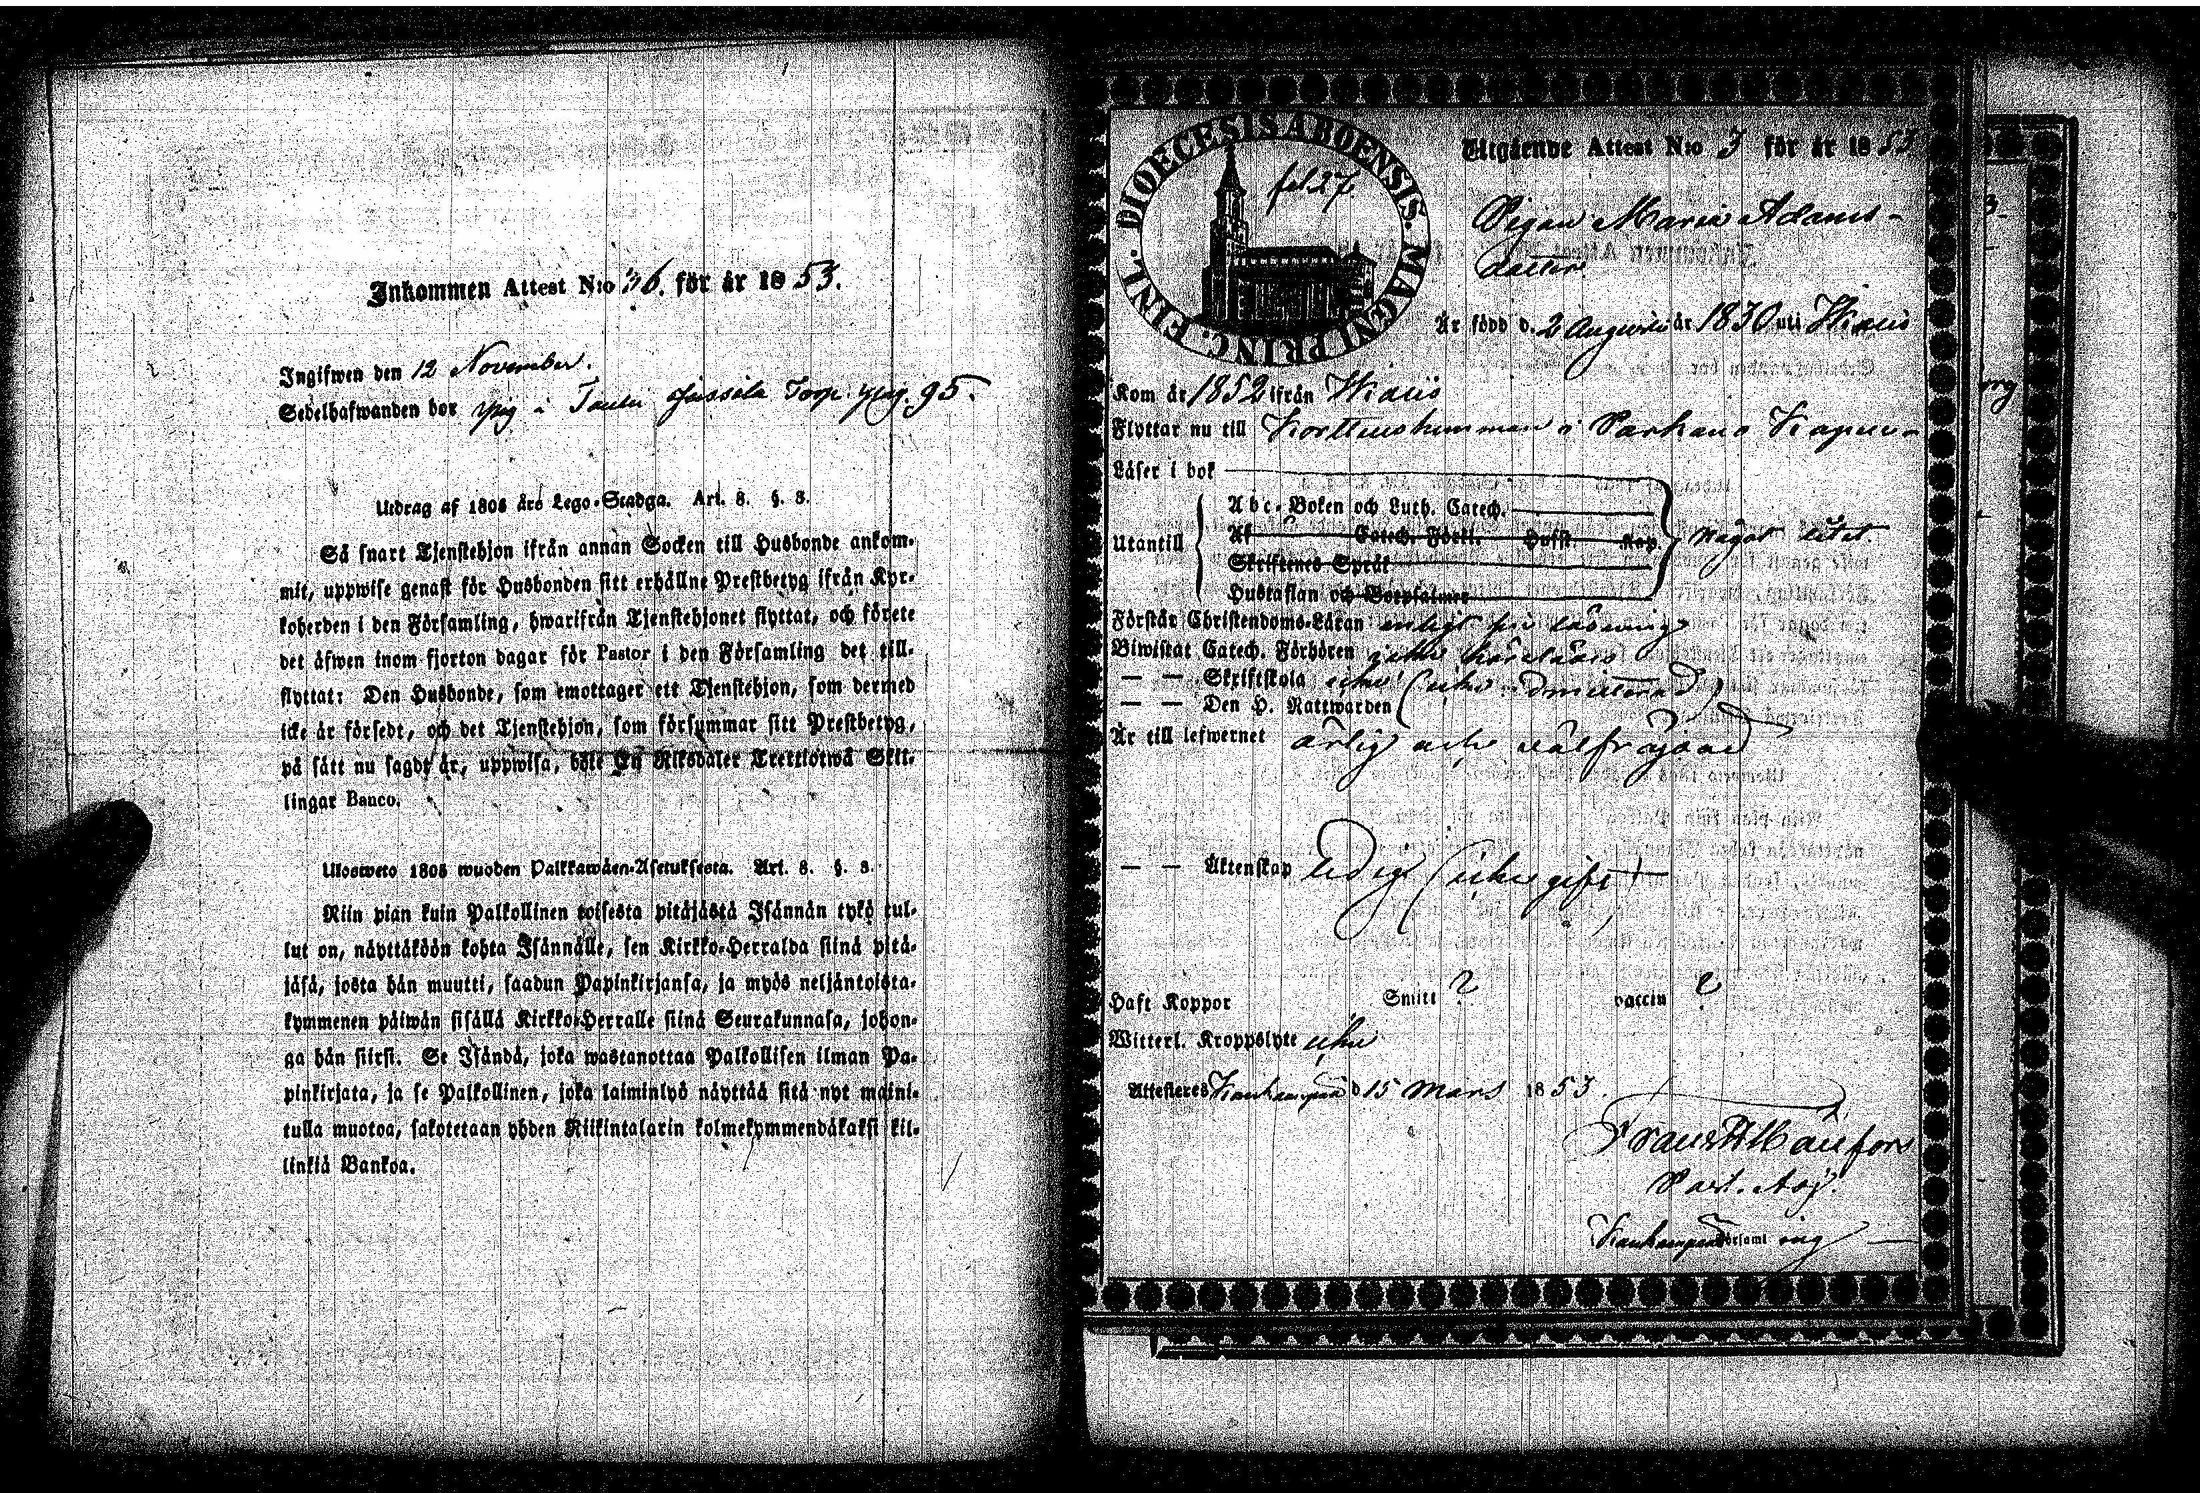 Inkommen Attest N:o 36. för år 1853.
Ingifwen den 12 November.
Sedelhafwanden bor pig i Jussila Torp. pag. 95.
Utdrag af 1805 års Lego-Stadga. Art. 8. §. 8.
Så snart Tjenstehjon ifrån annan Socken till Husbonde ankom-
mit, uppwise genast för Husbonden sitt erhållne Prestbetyg ifrån Kyr-
koherden i den Församling, hwarifrån Tjenstehjonet flyttat, och förete
det äfwen inom fjorton dagar för Pastor i den Församling det till-
flyttat: Den Husbonde, som emottager ett Tjenstehjon, som dermed
icke är försedt, och det Tjenstehjon, som försummar sitt Prestbetyg,
på sätt nu sagdt är, uppwisa, böte En Riksdaler Trettiotwå Skil-
lingar Banco.
Ulosweto 1805 wuoden Palkkawäen-Asetuksesta. Art. 8. §. 8.
Niin pian kuin Palkollinen toisesta pitäjästä Isännän tykö tul-
lut on, näyttäköön kohta Isännälle, sen Kirkko-Herralda siinä pitä-
jäsä, josta hän muutti, saadun Papinkirjansa, ja myös neljäntoista-
kymmenen päiwän sisällä Kirkko-Herralle siinä Seurakunnasa, johon-
ga hän siirsi. Se Isändä, joka wastanottaa Palkollisen ilman Pa-
pinkirjata, ja se Palkollinen, joka laiminlyö näyttää sitä nyt maini-
tulla muotoa, sakotetaan yhden Riikintalarin kolmekymmendäkaksi kil-
linkiä Bankoa.
DIOECESIS ABOENSIS. MAGNI PRINC. FINL.
fol 27.
Utgående Attest N:o 3 för år 1853
Pigan Maria Adams-
dotter
Är född d. 2 Augusti år 1830 uti Wiais
Kom år 1852 ifrån Wiais
Flyttar nu till Kortteishemman i Parkano Kapell-
Läser i bok
Utantill
Abc-Boken och Luth. Catech.
Af Catech. Förkl. Hufst. Kap.
Skriftenes Språk
Hustaflan och Botpsalmer
något litet
Förstår Christendoms-Läran enligt sin läsning
Biwistat Catech. Förhören icke härstädes
— — Skriftskola icke (icke admitterad)
— — Den H. Nattwarden
Är till lefwernet ärlig och välfräjdad
— — Äktenskap ledig (icke gift)
Haft Koppor Smitt ? vaccin ?
Witterl. Kroppslyte icke
Attesteras Kankaanpää d 15 Mars 1853.
Frans
Past. Adj.
Kankaanpää Församling